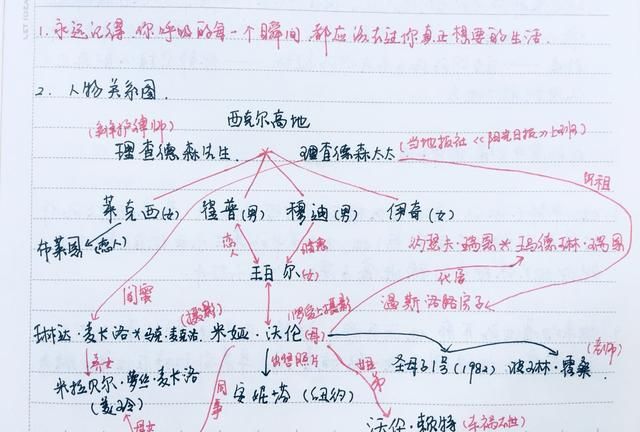 1. 永远记得,你呼吸的每一个瞬间,都应该去过你真正想要的生活.
2. 人物关系图.
西克尔高地
(辩护律师)
理查德森先生
理查德森太太
(当地报社《阳光日报》上班)
出租
莱克西(女)
崔普(男)
穆迪(男)
伊奇(女)
布莱恩(恋人)
恋人
暗恋
珀尔(女)
约瑟夫·瑞恩×玛德琳·瑞恩
代孕
温斯洛路房子
闺蜜
(摄影)
琳达·麦卡洛×马克·麦卡洛
米娅·沃伦(母)
养女
出售照片
姐弟
同事
圣母子1号(1982)
波琳·霍桑
(老师)
米拉贝尔·萝丝·麦卡洛
(美玲)
母女
安妮塔(纽约)
沃伦·赖特(车祸去世)